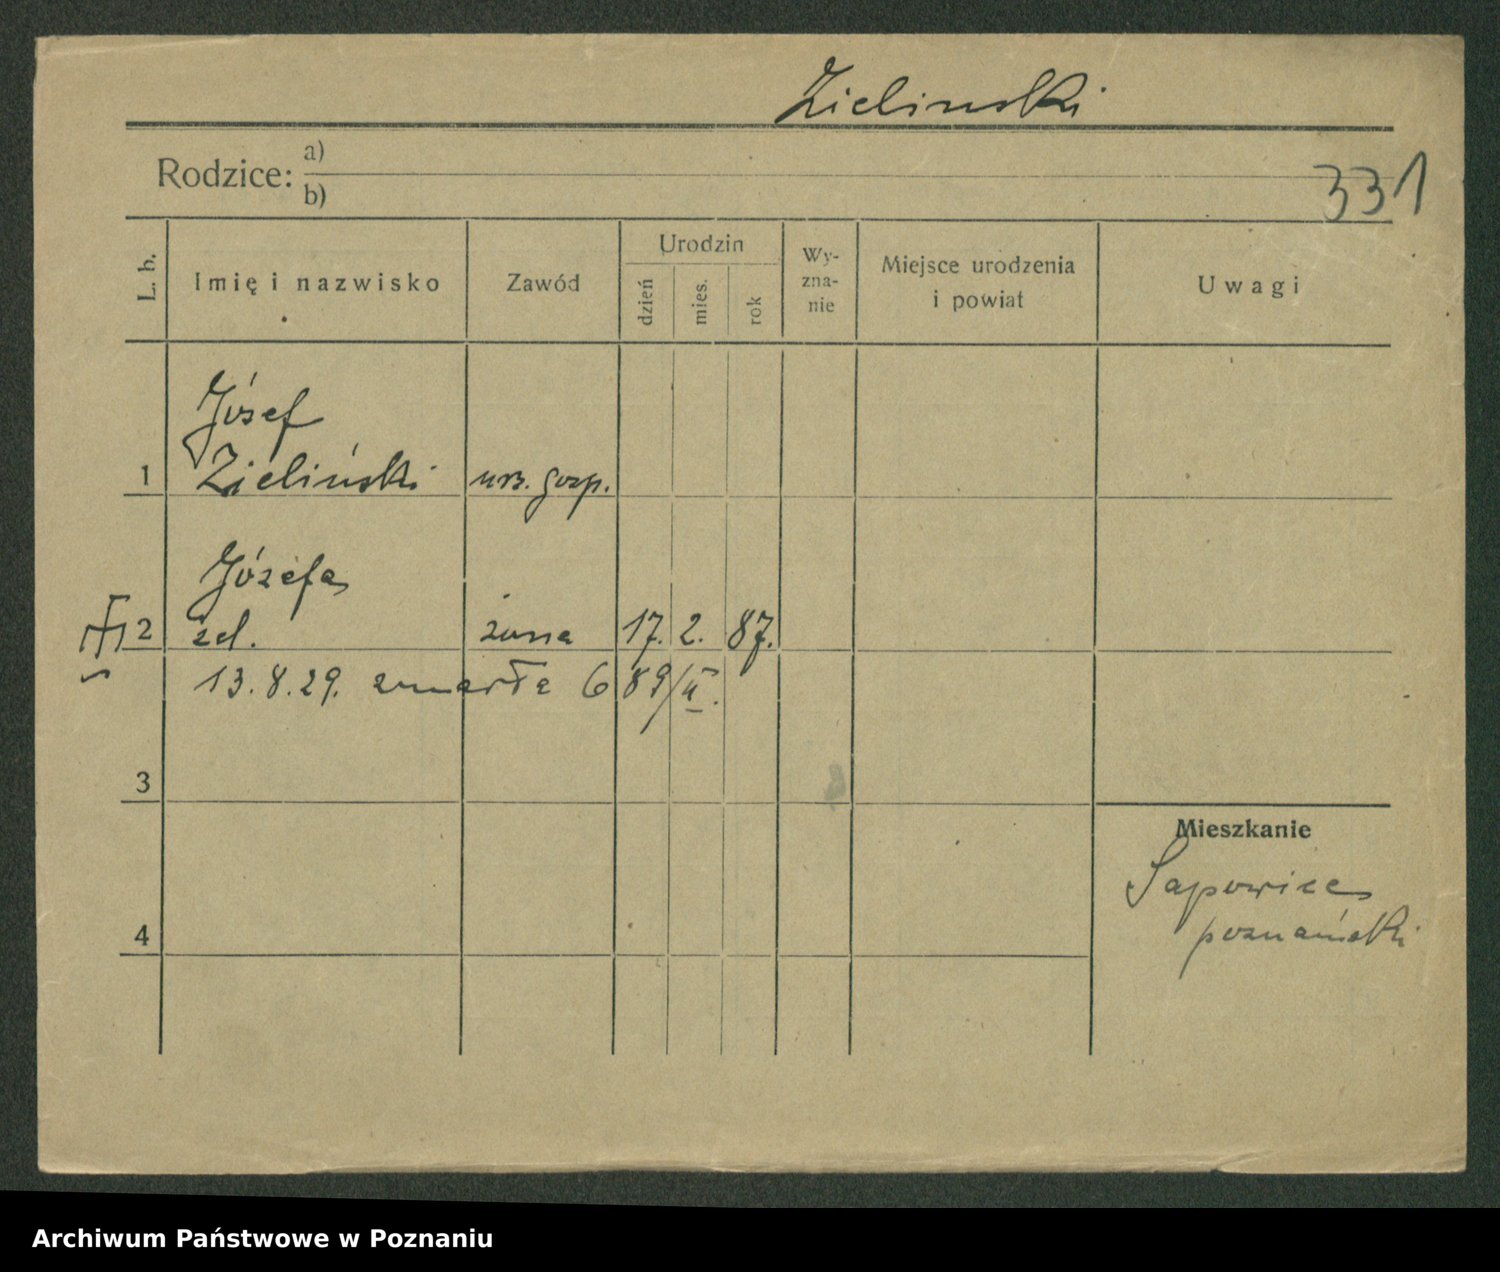 Zielinski
Rodzice: a)
b)
331
L. b.
Imię i nazwisko
Zawód
Urodzin
dzień
mies.
rok
Wy-
zna-
nie
Miejsce urodzenia
i powiat
Uwagi
Józef
1 Zieliński urz. gosp.
Józefa
2 zel. żona 17. 2. 87.
13.8.29. zmarła 689/II.
3
Mieszkanie
Sapowice
poznański
4
Archiwum Państwowe w Poznaniu